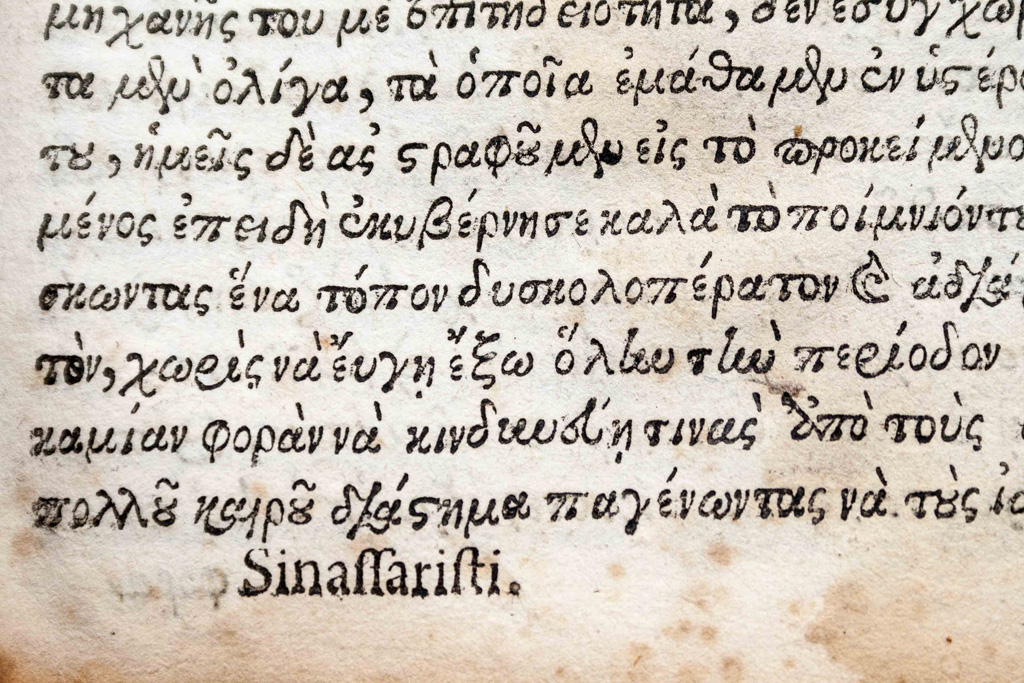 μηχανῆς του με ὀπιτηδειότητα, δεν ἐσυγχωρ
τα μὲν ὀλίγα, τὰ ὁποῖα ἐμάθαμεν ἐν ὑστέρ
του, ἡμεῖς δὲ ας στραφοῦμεν εἰς τὸ προκείμενο
μένος ἐπειδὴ ἐκυβέρνησε καλὰ τὸ ποίμνιόν τ
σκωντας ἕνα τόπον δυσκολοπέρατον καὶ
τὸν, χωρὶς νὰ ἔυγῃ ἔξω ὅλην τὴν περίοδον
καμίαν φορὰν νὰ τινας ἀπὸ τοὺς
πολλοῦ καιροῦ διάστημα παγένωντας νὰ τοὺς ἰα
Sinassaristi.